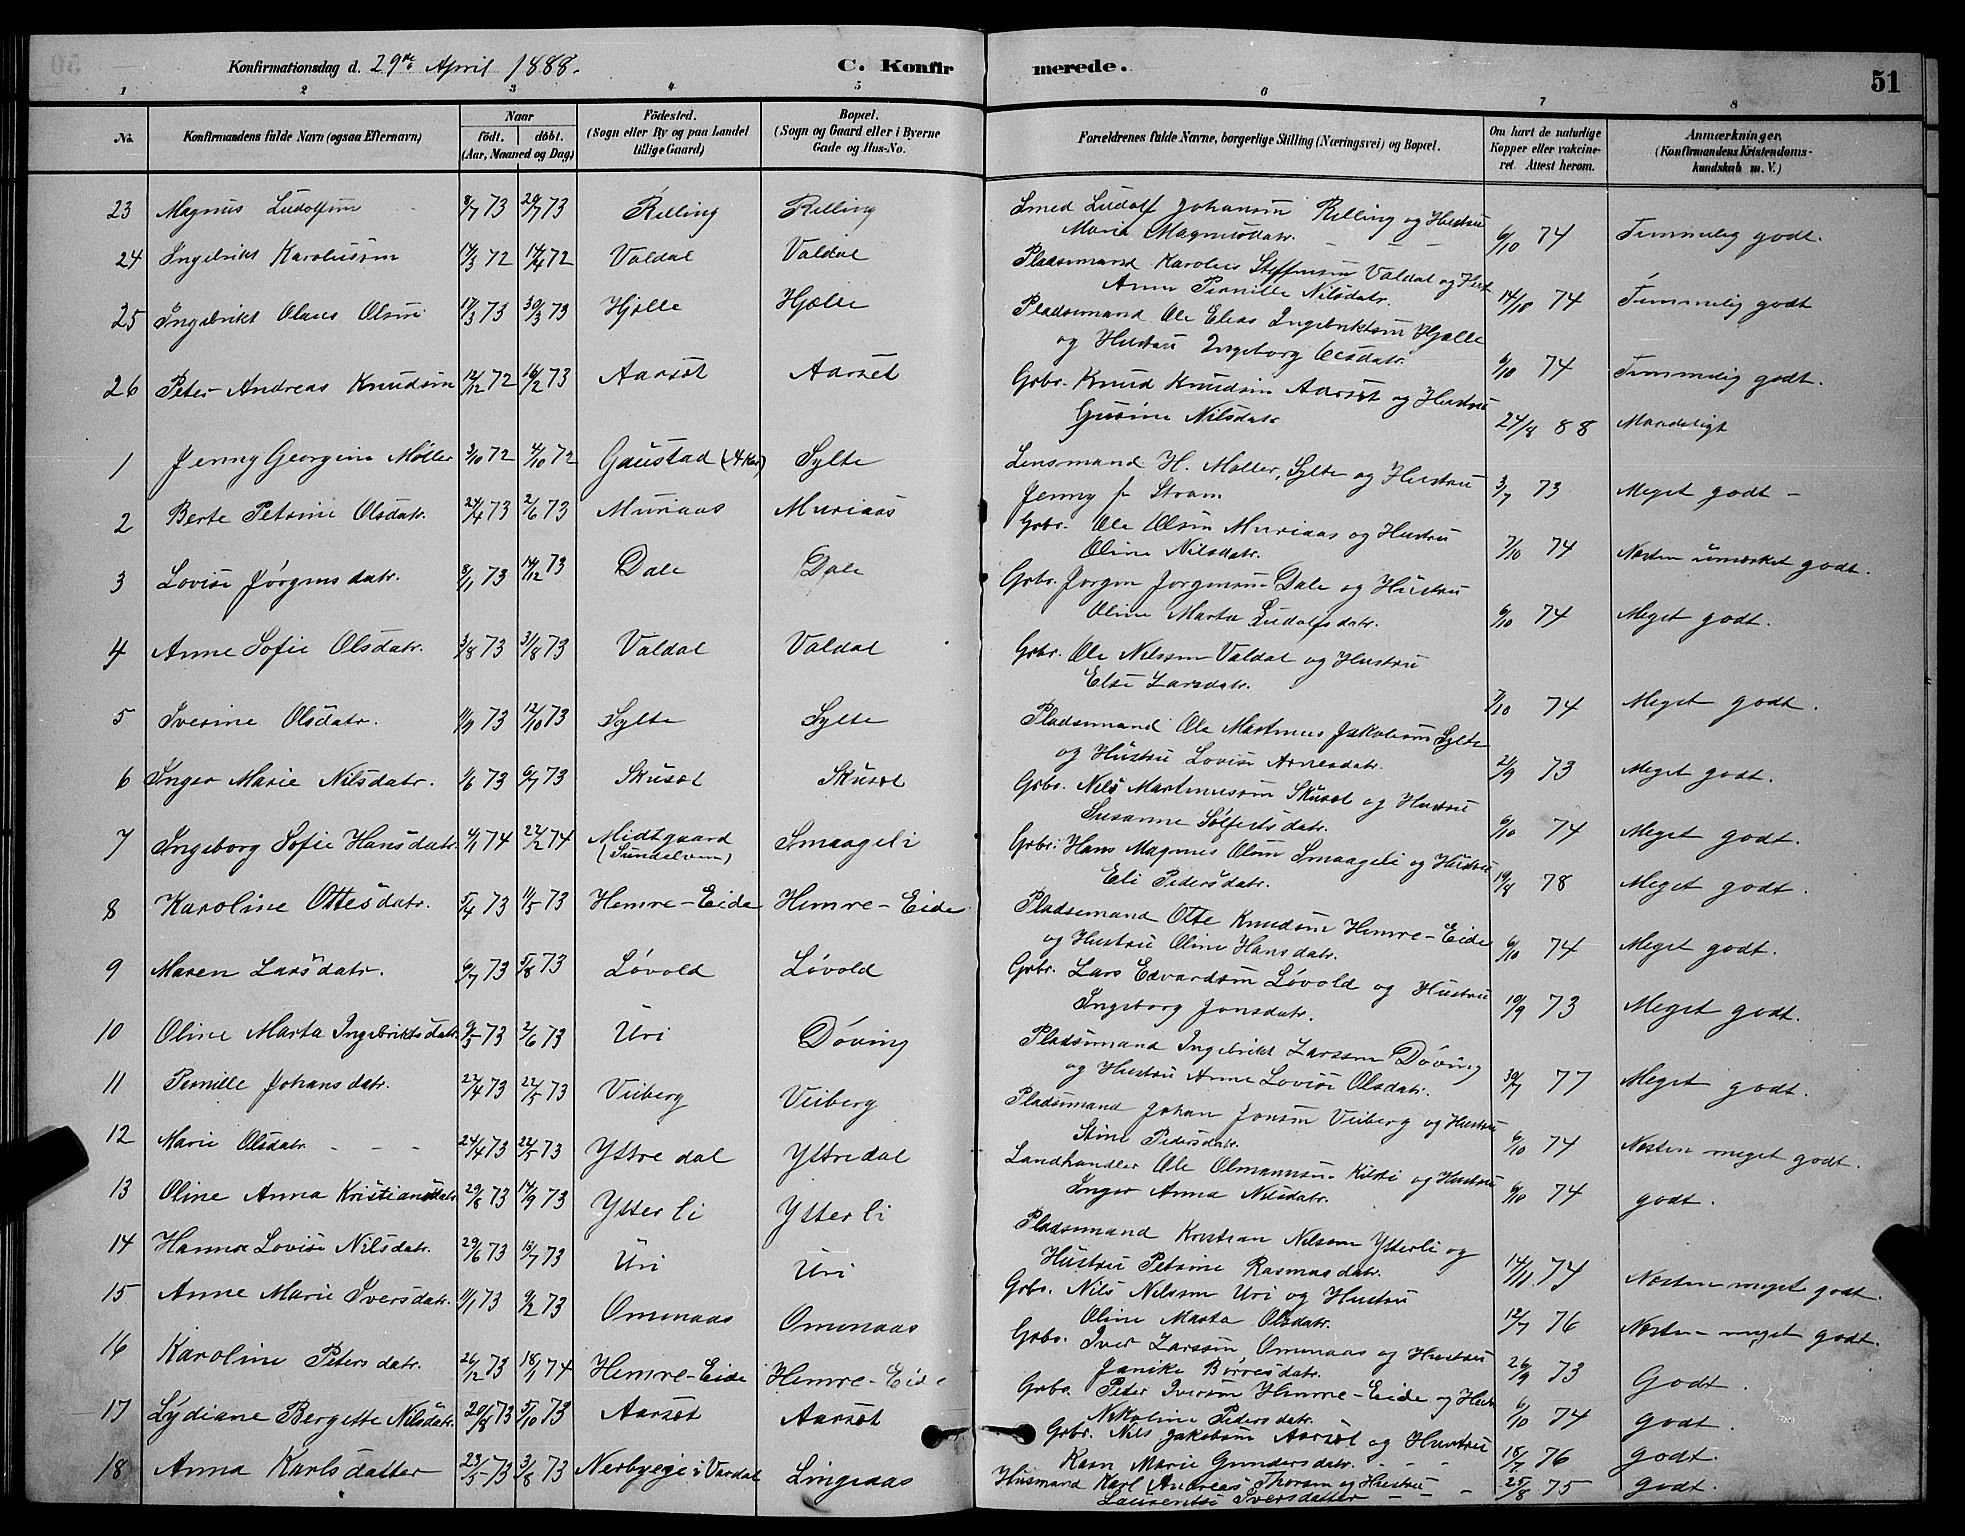 Konfirmationsdag d. 29de April 1888. C. Konfirmerede. 51
1 2 3 4 5 6 7 8
No. Konfirmandens fulde Navn (ogsaa Efternavn) Naar født. døbt. (Aar, Maaned og Dag) Födested. (Sogn eller By og paa Landet tillige Gaard) Bopæl. (Sogn og Gaard eller i Byerne Gade og Hus-No. Forældrenes fulde Navne, borgerlige Stilling (Næringsvei) og Bopæl. Om havt de naturlige Kopper eller vakcineret. Attest herom. Anmærkninger. (Konfirmandens Kristendomskundskab m. V.)
23 Magnus Ludolfsen 8/7 73 20/7 73 Relling Relling Smed Ludolf Johansen Relling og Hustru
Maria Magnusdatr. 6/10 74 Temmelig godt.
24 Ingebrikt Karolussøn 17/3 72 14/4 72 Valdal Valdal Pladsemand Karolus Steffensen Valdal og Hust
Anne Pernille Nilsdatr. 14/10 74 Temmelig godt
25 Ingebrikt Olaus Olsen 17/3 73 30/3 73 Hjelle Hjelle Pladsemand Ole Elias Ingebriktsen Hjelle
og Hustru Ingeborg Olsdatr. 6/10 74 Temmelig godt.
26 Peter Andreas Knudsen 12/12 72 16/2 73 Aarset Aarset Grbr. Knud Knudsen Aarset og Hustru
Gurine Nilsdatr 24/8 88 Maadeligt
1 Jenny Georgine Møller 3/10 72 4/10 72 Gaustad Sylte Lensmand H. Møller, Sylte og Hustru
Jenny f. Strøm 3/7 73 Meget godt -
2 Berte Petrine Olsdatr. 24/4 73 2/6 73 Muriaas Muriaas Grbr. Ole Olsen Muriaas og Hustru
Oline Nilsdatr. 7/10 74 Næsten udmærket godt.
3 Lovise Jørgensdatr. 8/1 73 14/12 73 Dale Dale Grbr. Jørgen Jørgensen Dale og Hustru
Oline Marta Ludolfsdatr. 6/10 74 Meget godt.
4 Anne Sofie Olsdatr. 3/8 73 31/8 73 Valdal Valdal Grbr. Ole Nilssen Valdal og Hustru
Else Larsdatr. 7/10 74 Meget godt.
5 Iverine Olsdatr. 11/9 73 12/10 73 Sylte Sylte Pladsemand Ole Martinus Jakobsen Sylte
og Hustru Lovise Arnesdatr. 21/9 73 Meget godt.
6 Inger Marie Nilsdatr. 1/6 73 6/7 73 Skuset Skuset Grbr. Nils Martinussen Skuset og Hustru
Susanne Solfestsdatr. 6/10 74 Meget godt.
7 Ingeborg Sofie Hansdatr. 4/1 74 22/2 74 Midtgaard (Sundelven) Smaageli Grbr. Hans Magnus Olsen Smaageli og Hustru
Eli Pedersdatr. 19/8 78 Meget godt.
8 Karoline Ottesdatr. 5/4 73 11/5 73 Hemre-Eide Hemre-Eide Pladsemand Otte Knudsen Hemre-Eide
og Hustru Oline Hansdatr. 6/10 74 Meget godt.
9 Maren Larsdatr. 6/7 73 5/8 73 Løvold Løvold Grbr. Lars Edvardsen Løvold og Hustru
Ingeborg Jonsdatr. 19/9 73 Meget godt.
10 Oline Marta Ingebriktsdatr. 9/5 73 2/6 73 Uri Døving Pladsemand Ingebrikt Larssen Døving
og Hustru Anne Lovise Olsdatr. 30/7 77 Meget godt.
11 Pernille Johansdatr. 27/4 73 22/5 73 Veiberg Veiberg Pladsemand Johan Jonsen Veiberg og Hustru
Stine Pedersdatr. 6/10 74 Næsten meget godt.
12 Marie Olsdatr. - - - 24/4 73 22/5 73 Yttredal Yttredal Landhandler Ole Olmannsen Kilsti og Hustru
Inger Anna Nilsdatr. 6/10 74 godt.
13 Oline Anna Kristiansdatr 29/8 73 14/9 73 Ytterli Ytterli Pladsemand Kristian Nilssen Ytterli og
Hustru Petrine Rasmusdatr. 14/11 74 Næsten meget godt.
14 Hanna Lovise Nilsdatr. 29/6 73 13/7 73 Uri Uri Grbr. Nils Nilssen Uri og Hustru
Oline Marta Olsdatr. 12/7 76 Næsten meget godt.
15 Anne Marie Iversdatr. 11/1 73 9/2 73 Omenaas Omenaas Grbr. Iver Larssen Omenaas og Hustru
Janike Børresdatr. 26/9 73 Godt.
16 Karoline Petersdatr. 26/12 73 18/1 74 Hemre-Eide Hemre-Eide Grbr. Peter Iversen Hemre-Eide og Hust
Nikoline Pedersdatr. 6/10 74 godt.
17 Lydiane Bergitte Nilsdatr. 20/8 73 5/10 73 Aarset Aarset Grbr. Nils Jakobsen Aarset og Hustru
Karn Marie Gundersdatr. - - - 18/7 76 godt.
18 Anna Karlsdatter 23/5 73 3/8 73 Nerbyegi i Vardal Lingeaas Husmand Karl Andreas Thorsen og Hustru
Laurentse Iversdatter - - - 25/8 75 godt.